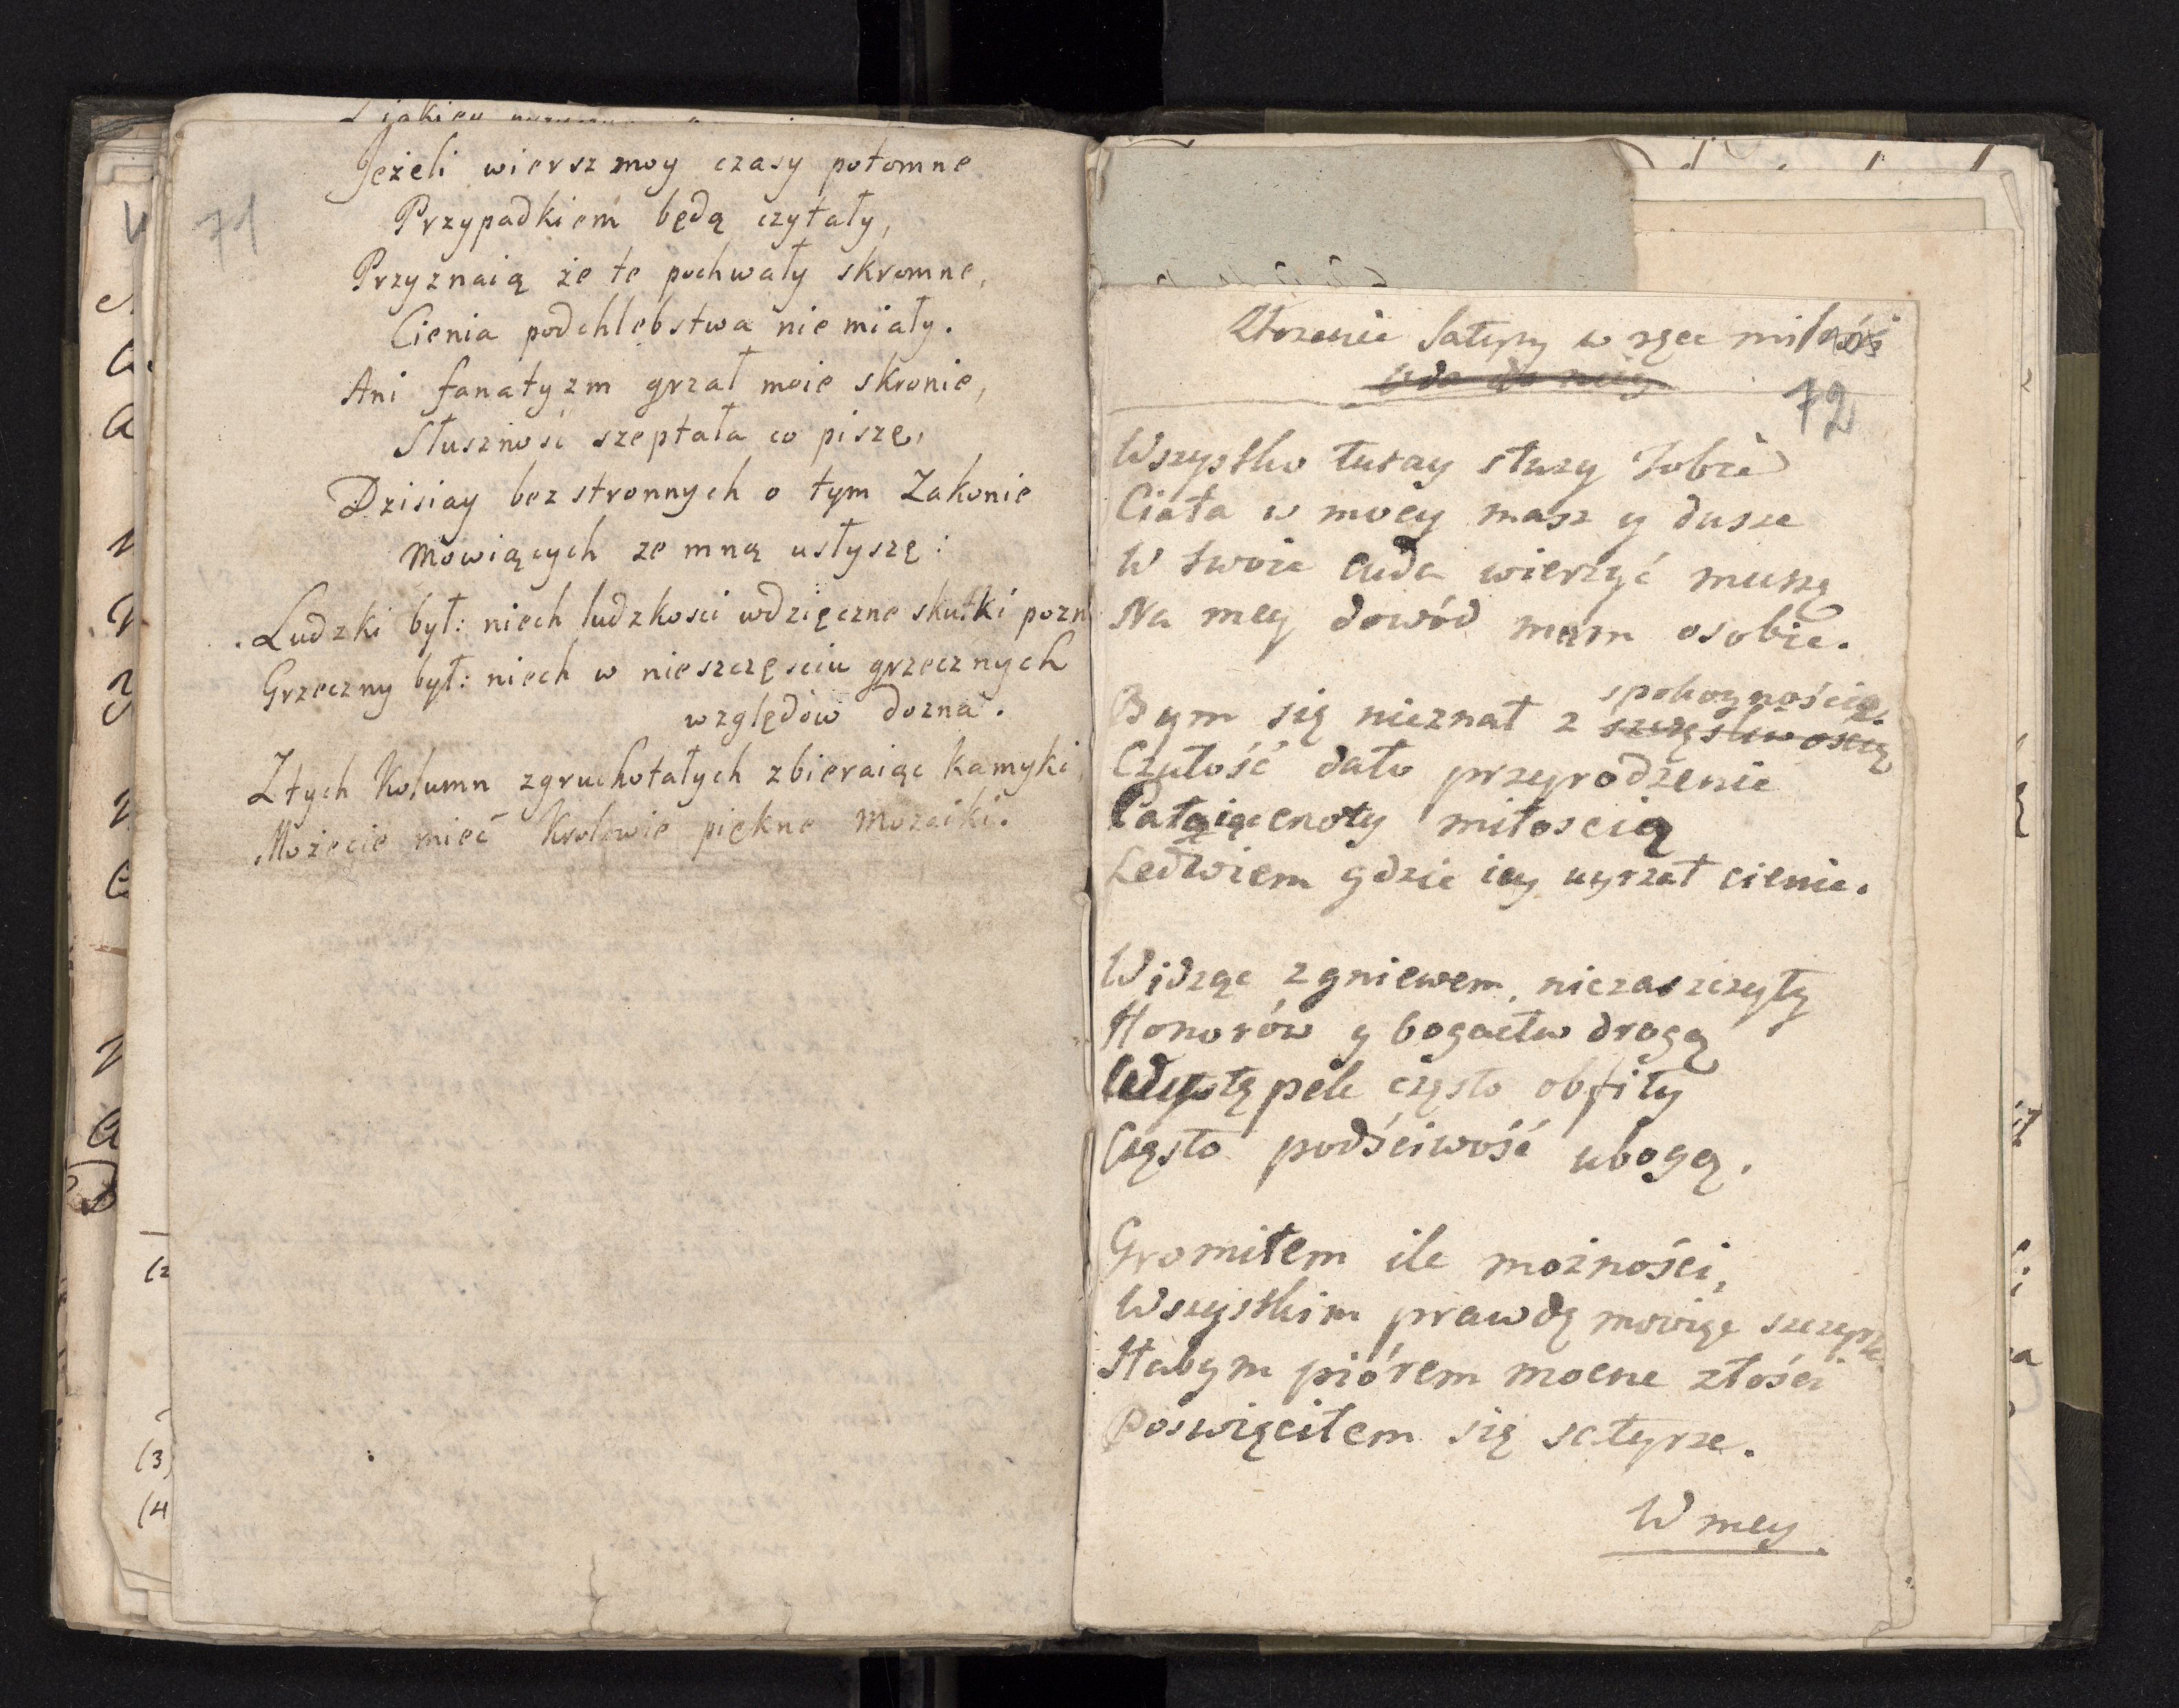 71
Jeżeli wiersz moy czasy potomne
Przypadkiem będą czytały,
Przyznaią że te pochwały skromne,
Cienia podchlebstwa nie miały.
Ani fanatyzm grzał moie skronie,
Słuszność szeptała co piszę,
Dzisiay bezstronnych o tym Zakonie
Mowiących ze mną usłyszę:
Ludzki był: niech ludzkosci wdzięczne skutki pozn
Grzeczny był: niech w nieszczęsciu grzecznych
względow dozna.
Z tych Kolumn zgruchotałych zbieraiąc kamyki,
Możecie mieć Krolowie piękne Mozaiki.
Złozenie Satyry w ręce miłości
Oda do
72
Wszystko tutay służy Tobie
Ciała w mocy masz y dusze
W twoie cuda wierzyć muszę
Na mey dowód mam osobie.
spokoynością.
Bym się nieznał z szczęsliwoscią
Czułość dało przyrodzenie
Pałaiąc cnoty miłoscią
Ledwiem gdzie iey uyrzał cienie.
Widząc z gniewem, niezaszczyty
Honorów y bogactw drogą
występek często obfity
Często podściwość ubogą.
Gromiłem ile możności,
Wszystkim prawdę mowiąc szczyrze
Słabym piórem mocne złości
Poswięciłem się satyrze.
W mey.
(2
(3)
(4